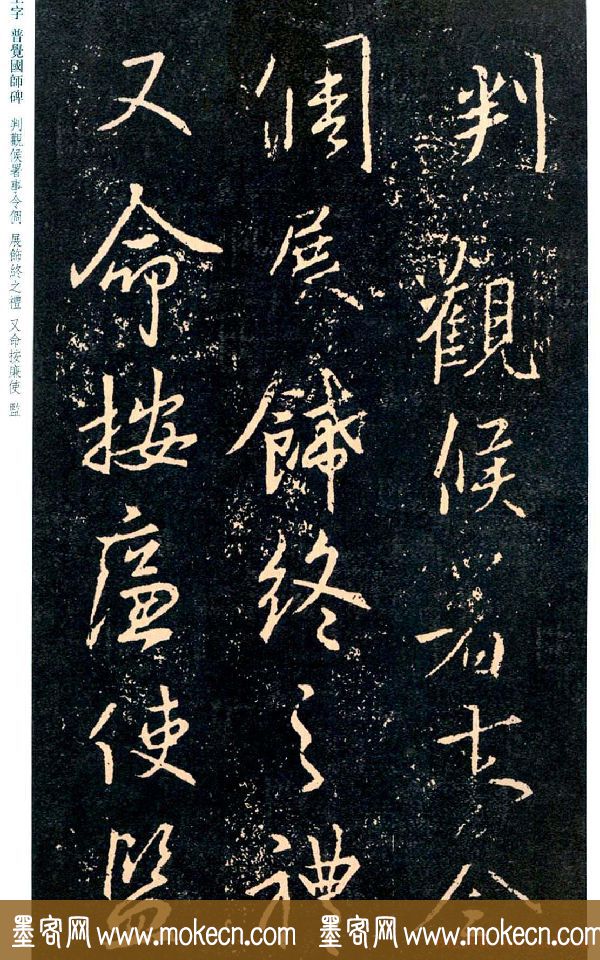 判觀候署事令
倜展飾終之禮
又命按廉使監
字 普覺國師碑 判觀候署事令倜 展飾終之禮 又命按廉使 監
墨客网 www.mokecn.com 墨客网 www.mokecn.com